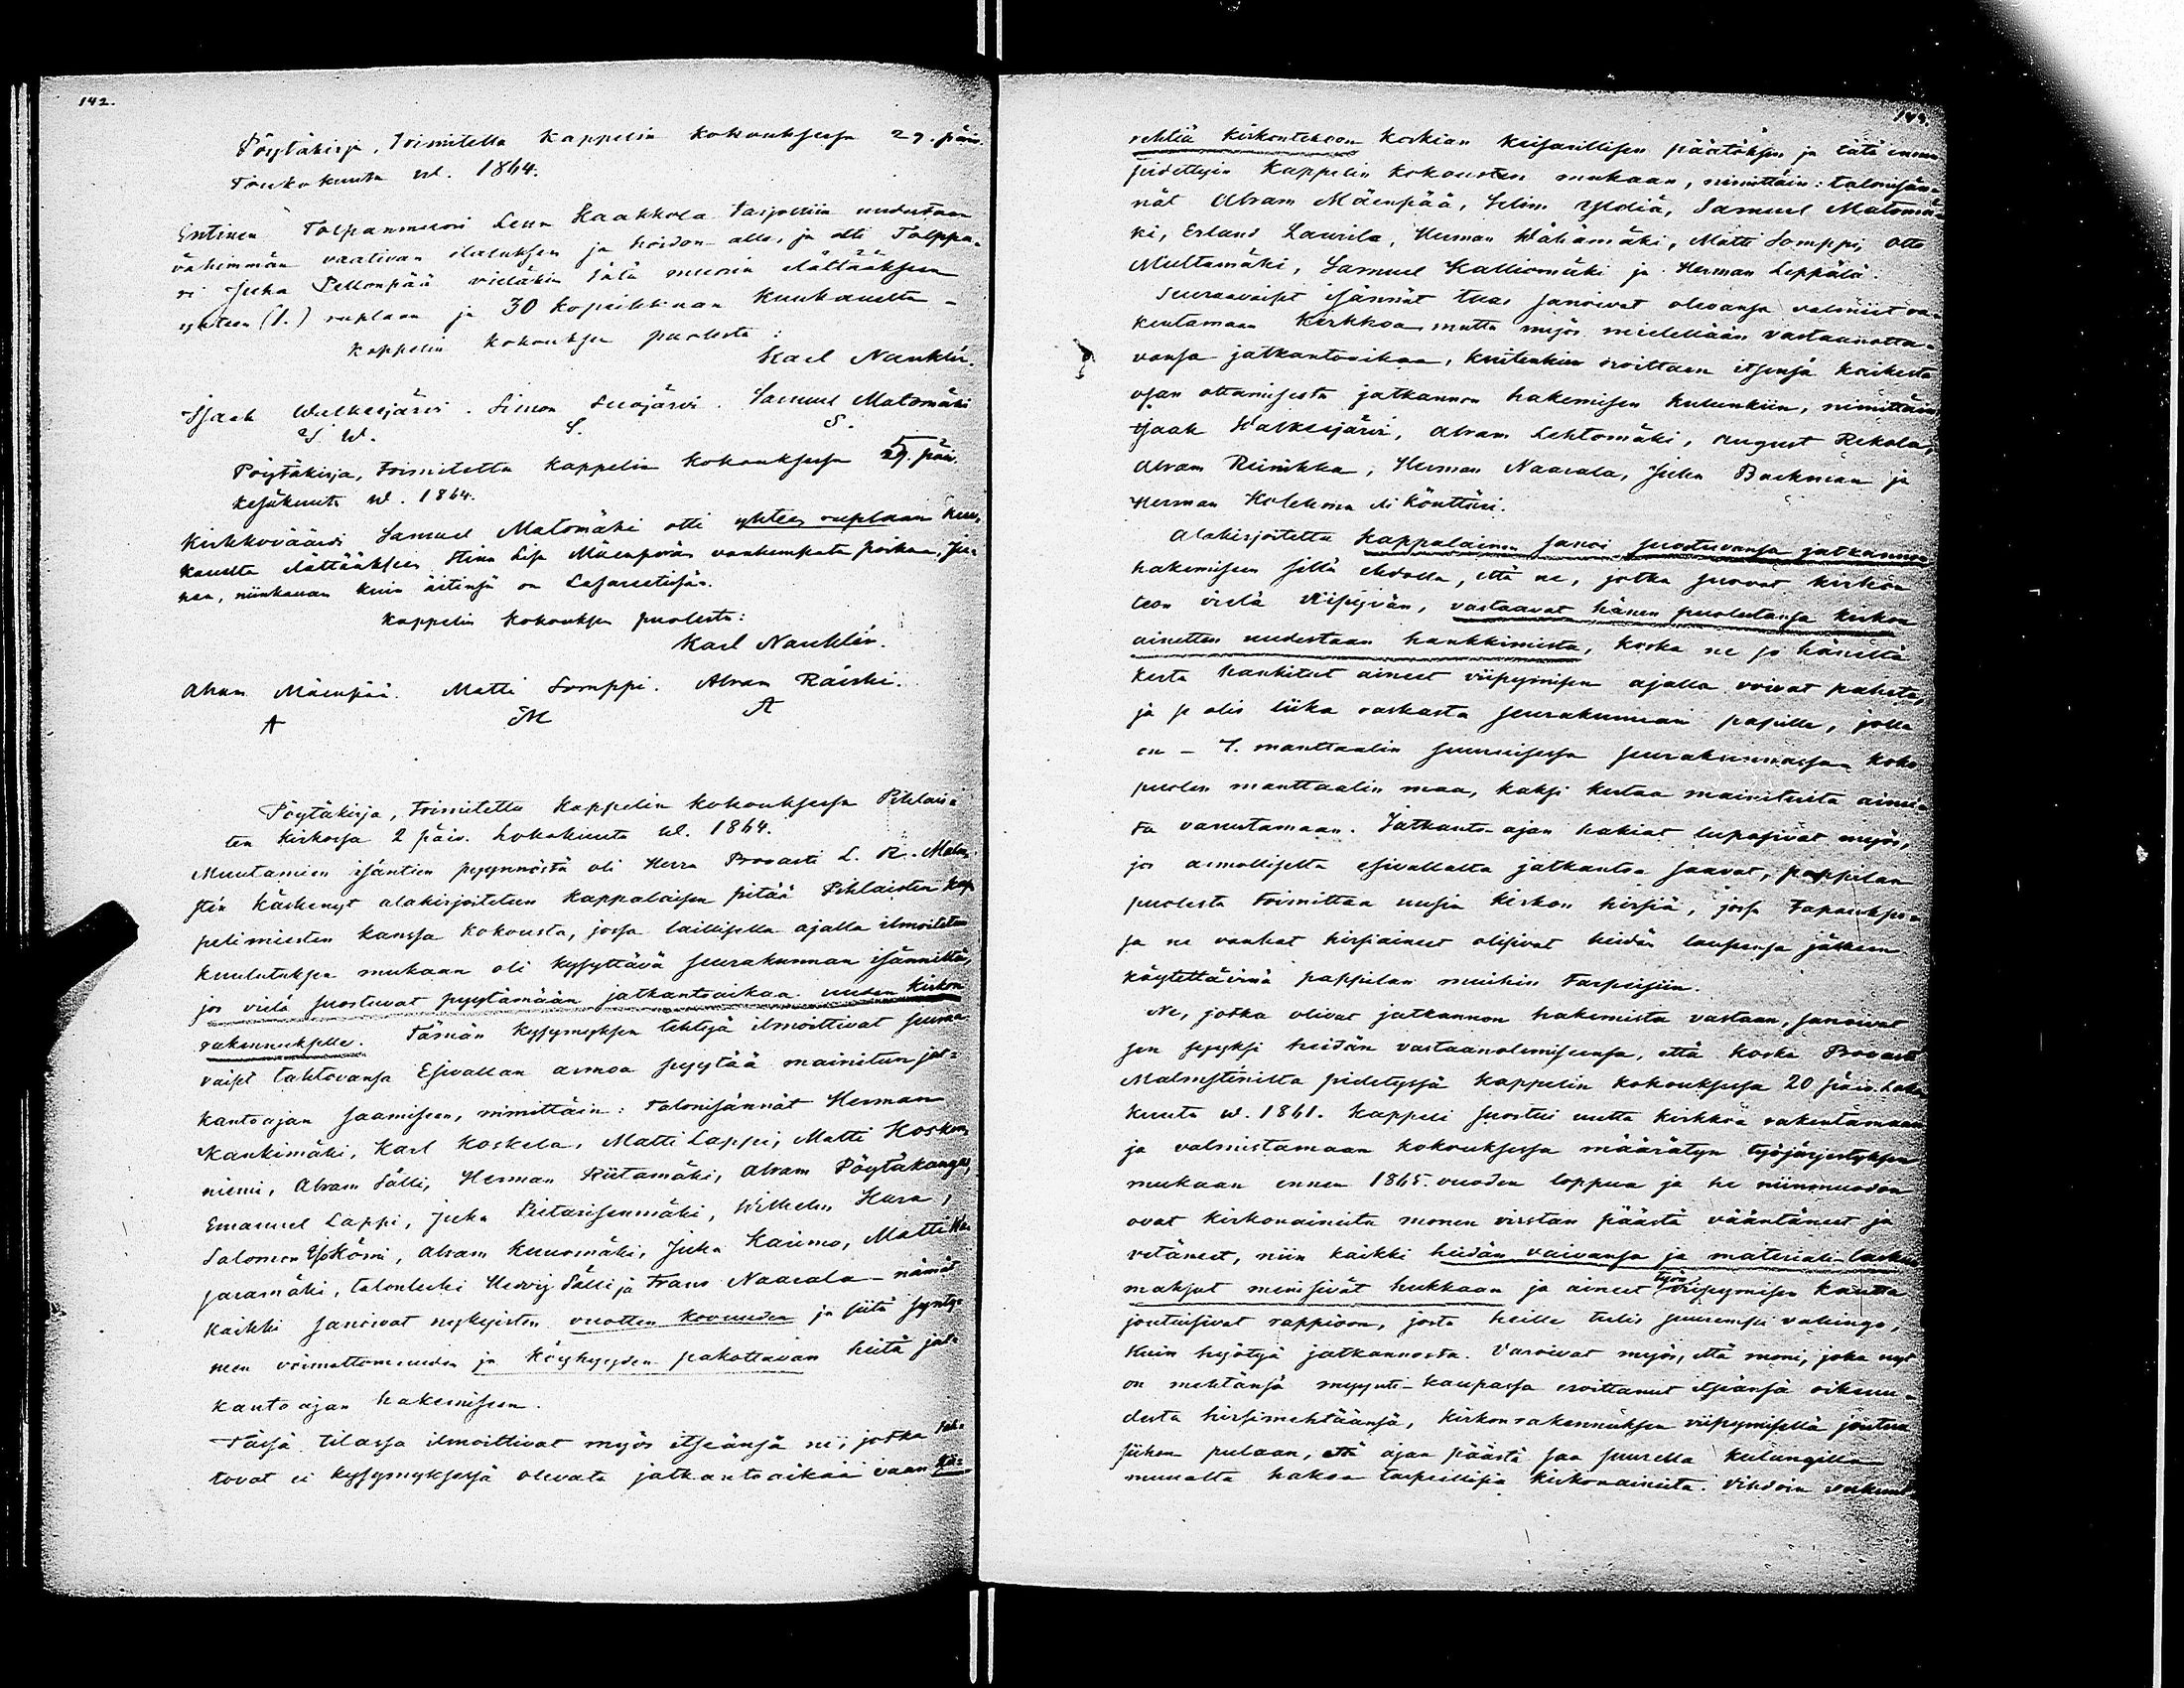 142.
Pöytäkirja, toimitettu kappelin kokouksessa 29. päiv.
Toukokuuta w. 1864.
Entinen Torpanmuori Leena Haakkola tarjottiin uudestaan
vähimmän vaativan elatuksen ja hoidon alle, ja otti Torppa-
ri Juha Pellonpää vieläkin tätä muoria elättääksensä
yhteen (1.) ruplaan ja 30 kopeikkaan kuukaudelta –
Kappelin kokouksen puolesta:
Karl Nanklér.
Isaak Walkeejärvi. Simon Suojärvi. Samuel Matomäki
I W. S. S.
Pöytäkirja, toimitettu kappelin kokouksessa päiv.
Kesäkuuta w. 1864.
Kirkkovääri Samuel Matomäki otti yhteen ruplaan kuu-
kaudelta elättääksensä Stina Lisa Mäenpään vanhempata poikaa, Ju-
haa, niinkauan kuin äitinsä on Lasaretissa.
Kappelin kokouksen puolesta:
Karl Nanklér.
Abram Mäenpää. Matti Somppi. Abram Räiski.
A M A
Pöytäkirja, toimitettu kappelin kokouksessa Pihlais-
ten kirkossa 2 päiv. lokakuuta w. 1864.
Muutamien isäntien pyynnöstä oli Herra Provasti L. R. Malm-
stén käskenyt alakirjoitetun kappalaisen pitää Pihlaisten kap-
pelimiesten kanssa kokousta, jossa laillisella ajalla ilmoitetun
kuulutuksen mukaan oli kysyttävä seurakunnan isänniltä,
jos vielä suostuvat pyytämään jatkantoaikaa uuden kirkon
rakennukselle. Tämän kysymyksen tehtyä ilmoittivat seuraa-
vaiset tahtovansa Esivallan armoa pyytää mainitun jat-
kantoajan saamiseen, nimittäin: talonisännät Herman
Kankimäki, Karl Koskela, Matti Lappi, Matti Kosken-
niemi, Abram Sälli, Herman Riitamäki, Abram Pöytäkangas,
Emanuel Lappi, Juha Pietarisenmäki, Wilhelm Hura,
Salomon Yökörni, Abram Kuusmäki, Juha Karimo, Matti Wa-
saramäki, talonleski Hedvig Sälli ja Frans Naarala – nämät
kaikki sanoivat nykyisten vuotten kovuuden ja siitä synty-
neen voimattomuuden ja köyhyyden pakottavan heitä jat-
kantoajan hakemiseen.
Tässä tilassa ilmoittivat myös itseänsä ne, jotka tah-
tovat ei kysymyksessä olevata jatkantoaikaa vaan
rehtiä kirkontekoon korkian keisarillisen päätöksen ja tätä ennen
pidettyin kappelin kokousten mukaan, nimittäin: talonisän-
nät Abram Mäenpää, Selim Yrdiä, Samuel Matomä-
ki, Erland Laurila, Herman Wähämäki, Matti Somppi, Otto
Multamäki, Samuel Kalliomäki ja Herman Leppälä.
Seuraavaiset isännät taas sanoivat olevansa valmiit ra-
kentamaan kirkkoa mutta myös mielellään vastaanotta-
vansa jatkantoaikaa, kuitenkin eroittaen itsensä kaikesta
osan ottamisesta jatkannon hakemisen kulunkiin, nimittäin
Isaak Walkeejärvi, Abram Lehtomäki, August Rekola,
Abram Reinikka, Herman Naarala, Juha Backman ja
Herman Kolehma eli Könttäri.
Alakirjoitettu kappalainen sanoi suostuvansa jatkannon
hakemiseen sillä ehdolla, että ne, jotka suovat kirkon
teon vielä viipyvän, vastaavat hänen puolestansa kirkon
ainetten uudestaan hankkimista, koska ne jo häneltä
kerta hankitut aineet viipymisen ajalla voivat pahentua,
ja se olis liika raskasta seurakunnan papille, jolla
on – 7. manttaalin suuruisessa seurakunnassa – koko
puolen manttaalin maa, kaksi kertaa mainituita ainei-
ta varustamaan. Jatkanto-ajan hakiat lupasivat myös,
jos armolliselta esivallalta jatkantoa saavat, pappilan
puolesta toimittaa uusia kirkon hirsiä, jossa tapaukses-
sa ne vanhat hirsiaineet olisivat heidän lupansa jälkeen
käytettävinä pappilan muihin tarpeisiin.
Ne, jotka olivat jatkannon hakemista vastaan, sanoivat
sen syyksi heidän vastaanolemiseensa, että koska Provasti
Malmsténilta pidetyssä kappelin kokouksessa 20 päiv. loka-
kuuta w. 1861. kappeli suostui uutta kirkkoa rakentamaan
ja valmistamaan kokouksessa määrätyn työjärjestyksen
mukaan ennen 1865. vuoden loppua ja he niinmuodon
ovat kirkonaineita monen virstan päästä vääntäneet ja
vetäneet, niin kaikki heidän vaivansa ja materiali-laskun
maksut menisivät hukkaan ja aineet työn viipymisen kautta
joutuisivat rappioon, josta heille tulis suurempi vahingo,
kuin hyötyä jatkannosta. Varoivat myös, että moni, joka nyt
on mehtänsä myynti-kaupassa eroittanut itseänsä oikeu-
desta hirsimehtäänsä, kirkonrakennuksen viipymisellä joutuu
siihen pulaan, että ajan päästä saa suurella kulungilla
muualta hakea tarpeellisia kirkonaineita. Vihdoin